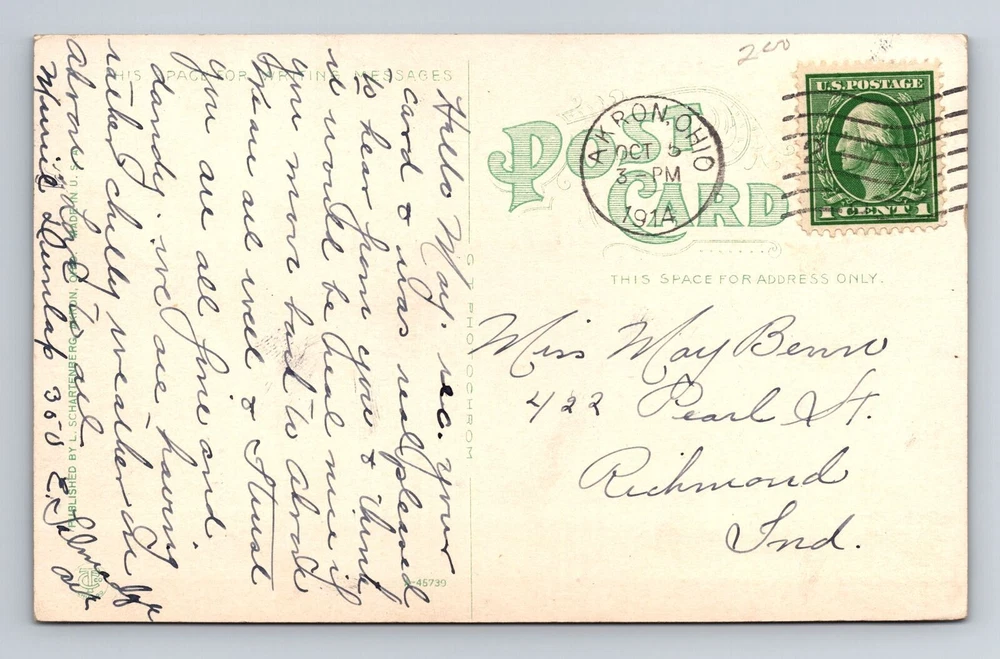 THIS SPACE FOR WRITING MESSAGES
Hello May. rec. your
card & was real pleased
to hear from you & think
it would be real nice if
you move back to abrode
We are all well & trust
you are all fine and
dandy. we are having
rather chilly weather
above
Minnie Dunlap
PUBLISHED BY L. SCHARTENBERG, AKRON, OHIO. MADE IN U. S. A.
A-45739
C T PHOTOCHROM
POST
CARD
200
AKRON, OHIO
OCT 5
3 PM
1914
U.S. POSTAGE
1 CENT 1
THIS SPACE FOR ADDRESS ONLY.
Miss May Benn
422 Pearl St.
Richmond
Ind.